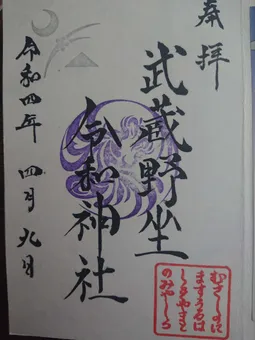 奉拝
武蔵野坐
令和神社
令和四年 四月 九日
むさしのに
ますうるは
しきやまと
のみやしろ